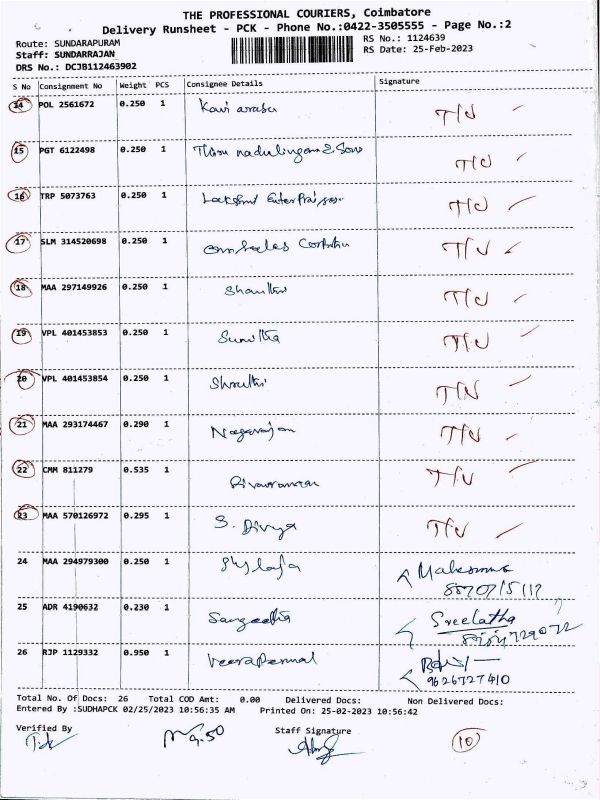 THE PROFESSIONAL COURIERS, Coimbatore
Delivery Runsheet - PCK - Phone No.:0422-3505555 - Page No.:2
Route: SUNDARAPURAM RS No.: 1124639
Staff: SUNDARRAJAN RS Date: 25-Feb-2023
DRS No.: DCJB112463902
S No Consignment No Weight PCS Consignee Details Signature
14 POL 2561672 0.250 1 Kavi arasu T/U
15 PGT 6122498 0.250 1 & Sons T/U
16 TRP 5073763 0.250 1 Lakshmi Enterprises T/U
17 SLM 314520698 0.250 1 T/U
18 MAA 297149926 0.250 1 Shanthi T/U
19 VPL 401453853 0.250 1 Sunitha T/U
20 VPL 401453854 0.250 1 Shruthi T/U
21 MAA 293174467 0.290 1 Nagarajan T/U
22 CMM 811279 0.535 1 T/U
23 MAA 570126972 0.295 1 S. Divya T/U
24 MAA 294979300 0.250 1 Shylaja
25 ADR 4190632 0.230 1 Sangeetha Sreelatha
26 RJP 1129332 0.950 1 Veeraperumal
9626727410
Total No. Of Docs: 26 Total COD Amt: 0.00 Delivered Docs: Non Delivered Docs:
Entered By :SUDHAPCK 02/25/2023 10:56:35 AM Printed On: 25-02-2023 10:56:42
Verified By Staff Signature
9.50
10